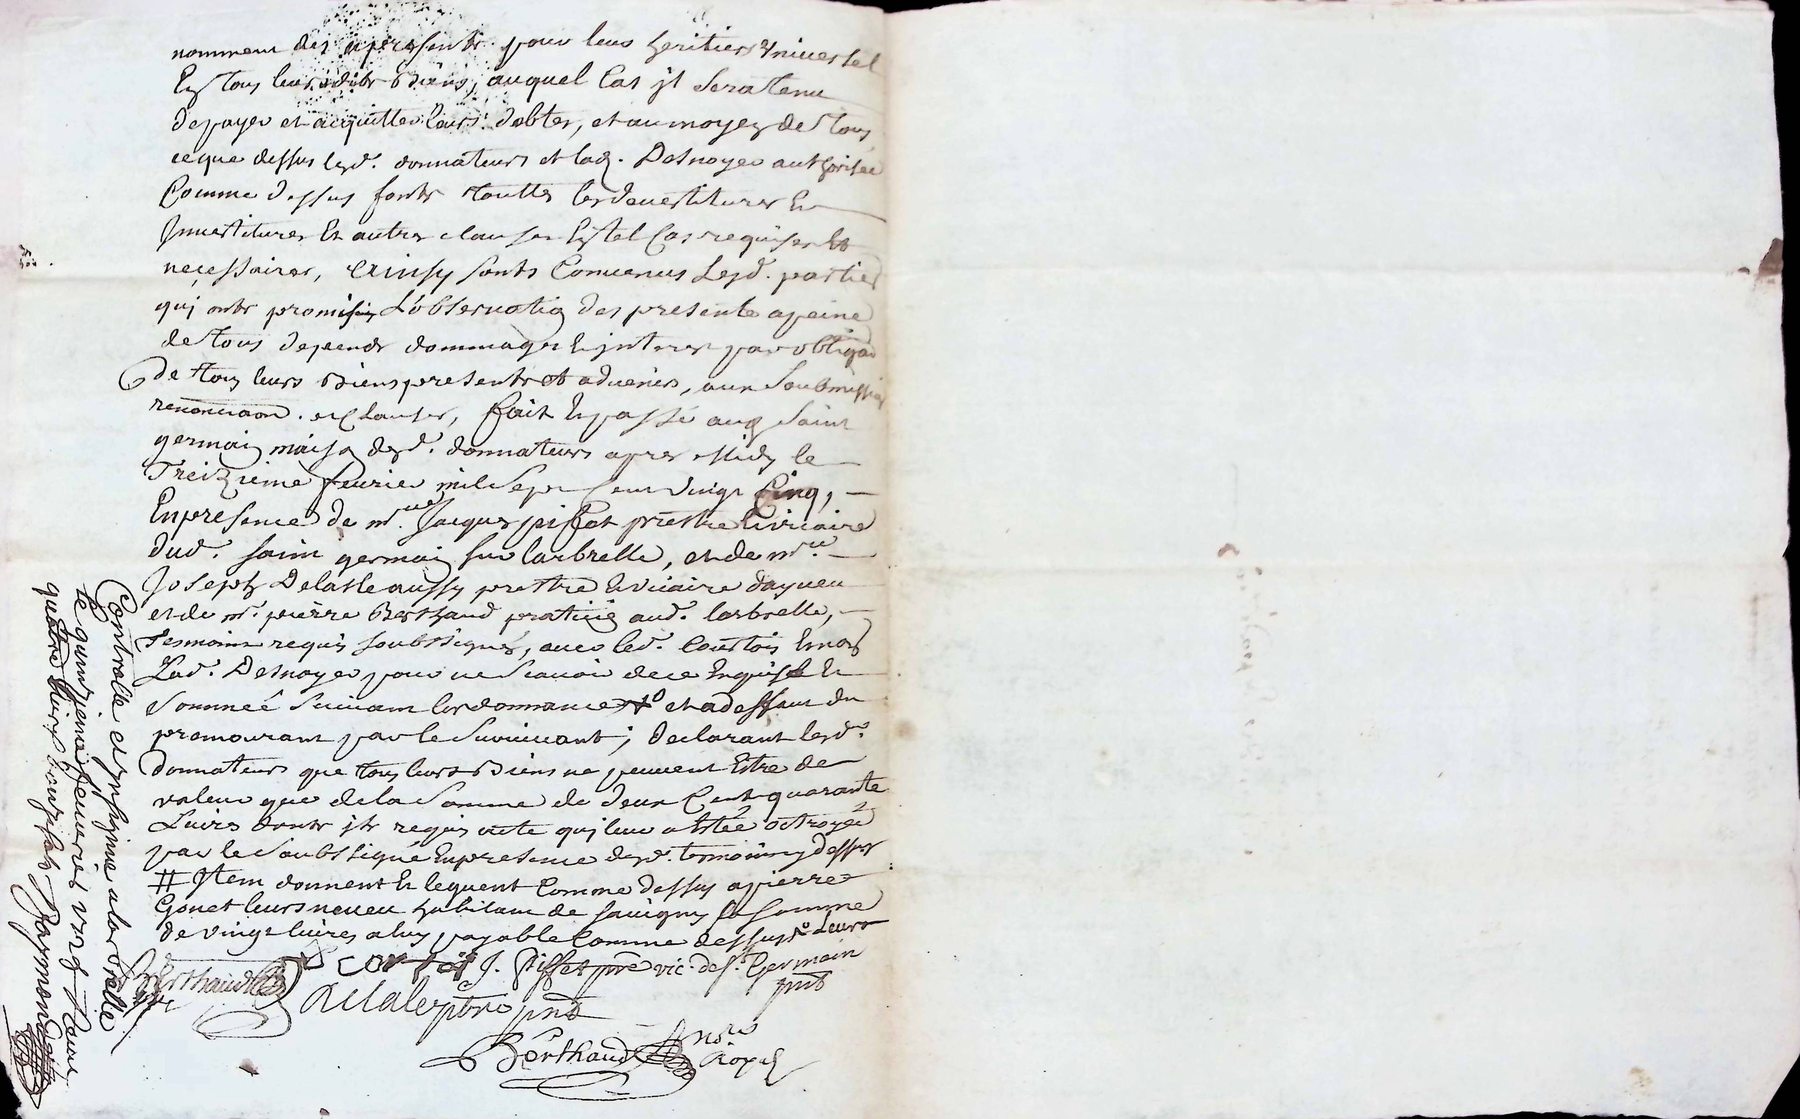 nomment des apresents pour leurs heritiers vniversel
En tous leursdits Biens, auquel Cas jl Sera tenu
de payer et acquitter leurs debtes, et au moyen de tous
ce que dessus lesd. donnateurs et lad. Desnoyer authorisée
Comme dessus fonts touttes les devestitures Et
Jnvestitures Et autres clauses En tel Cas requises Et
necessaires, Ainsy sonts Convenus Lesd. parties
quj onts promis L'observation des presente a peine
de tous despends dommages Et jnterest par obligaon
de tous leurs Biens presents et advenirs, aux Soubmission
renonciaon. et Clauses, fait Et passé aud Saint
germain maison desd. donnateurs apres Midy le
Treizieme fevrier mil Sept Cent vingt Cinq,
En presence de mre. Jacques piffet prestre Et vicaire
dud. saint germain sur larbrelle, et de mre.
Joseph Delalle aussy prestre Et vicaire
et de mr. pierre Berthaud praticien aud. larbrelle,
Tesmoins requis soubsignés, avec led. Courtois Et non
Lad. Desnoyer pour ne Scavoir de ce Enquise Et
Sommée Suivant lordonnance et a deffaut du
premourant par le Survivant; declarant lesd.
donnateurs que tous leurs Biens ne peuvent Estre de
valeur que de la Somme de deux Cent quarante
Livres donts jls requis acte quj leur a Estée octroyée
par le Soubsigné En presence desd. temoins dessus
# Jtem donnent Et leguent Comme dessus a pierre
Gonet leurs neveu habitant de savigny la somme
de vingt livres a luy payable Comme dessus
J. Piffet pre vic. de St. Germain
pnt
Berthaud
Delalle ptre pnt
Berthaud nore
Royal
Controllé et jnsinué a larbrelle
le quinzieme fevrier 1725 Reçu
quatre livres
Raymond